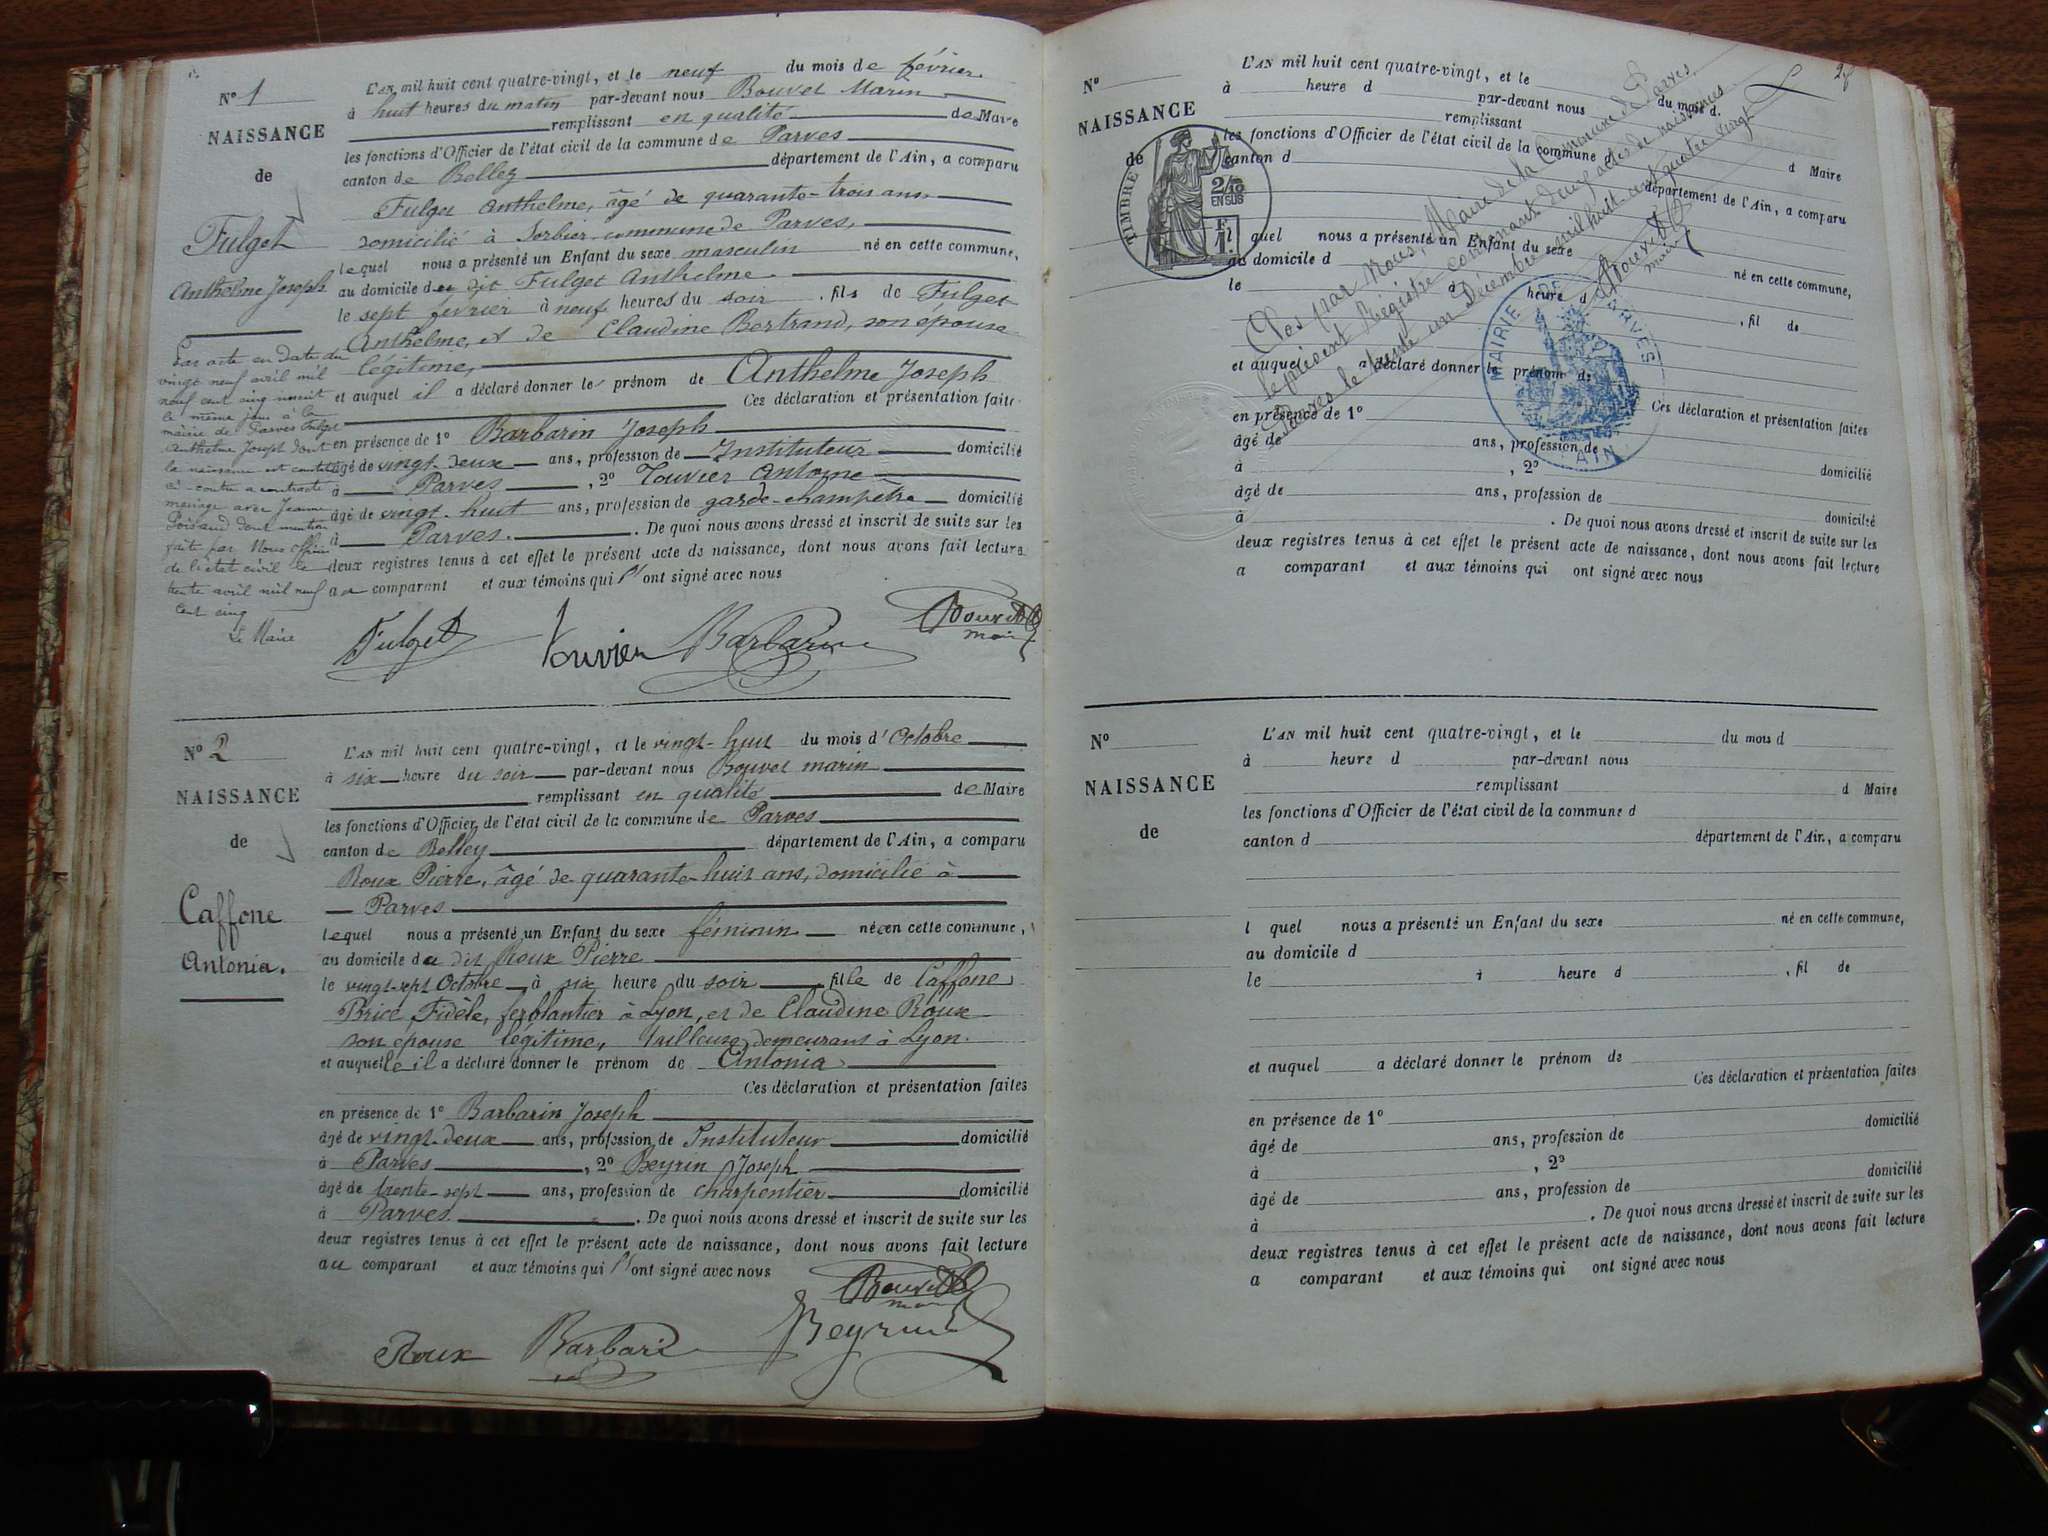 N° 1
NAISSANCE
de
Fulget
Anthelme Joseph
L'AN mil huit cent quatre-vingt, et le neuf du mois de février
à huit heures du matin par-devant nous Bouvet Marin
remplissant en qualité de Maire
les fonctions d'Officier de l'état civil de la commune de Parves
canton de Belley département de l'Ain, a comparu
Fulget Anthelme, âgé de quarante-trois ans
domicilié à Sorbier commune de Parves,
lequel nous a présenté un Enfant du sexe masculin né en cette commune,
au domicile du dit Fulget Anthelme
le sept février à neuf heures du soir, fils de Fulget
Anthelme, et de Claudine Bertrand, son épouse
légitime,
et auquel il a déclaré donner les prénom de Anthelme Joseph
Ces déclaration et présentation faites
en présence de 1° Barbarin Joseph
âgé de vingt-deux ans, profession de Instituteur domicilié
à Parves, 2° Touvier Antoine
âgé de vingt-huit ans, profession de garde-champêtre domicilié
à Parves. De quoi nous avons dressé et inscrit de suite sur les
deux registres tenus à cet effet le présent acte de naissance, dont nous avons fait lecture
au comparant et aux témoins qui l' ont signé avec nous
Par acte en date du
vingt neuf avril mil
neuf cent cinq inscrit
le même jour à la
mairie de Parves Fulget
Anthelme Joseph dont
la naissance est constatée
ci-contre a contracté
mariage avec Jeanne
Poisaud dont mention
faite par Nous officier
de l'état civil le
trente avril mil neuf
cent cinq
Le Maire
Fulget Touvier Barbarin Bouvet
maire
N° 2
NAISSANCE
de
Caffone
Antonia.
L'AN mil huit cent quatre-vingt, et le vingt-huit du mois d'Octobre
à six heure du soir par-devant nous Bouvet marin
remplissant en qualité de Maire
les fonctions d'Officier de l'état civil de la commune de Parves
canton de Belley département de l'Ain, a comparu
Roux Pierre, âgé de quarante-huit ans, domicilié à
Parves
lequel nous a présenté un Enfant du sexe féminin née en cette commune,
au domicile du dit Roux Pierre
le vingt-sept Octobre à six heure du soir fille de Caffone
Brice, Fidèle, ferblantier à Lyon, et de Claudine Roux
son épouse légitime, tailleuse demeurant à Lyon.
et auquelle il a déclaré donner le prénom de Antonia
Ces déclaration et présentation faites
en présence de 1° Barbarin Joseph
âgé de vingt-deux ans, profession de Instituteur domicilié
à Parves, 2° Beyrin Joseph
âgé de trente-sept ans, profession de charpentier domicilié
à Parves. De quoi nous avons dressé et inscrit de suite sur les
deux registres tenus à cet effet le présent acte de naissance, dont nous avons fait lecture
au comparant et aux témoins qui l' ont signé avec nous
Bouvet
maire
Roux Barbarin Beyrin
2
N°
NAISSANCE
de
L'AN mil huit cent quatre-vingt, et le du mois d
à heure d par-devant nous
remplissant d Maire
les fonctions d'Officier de l'état civil de la commune d
canton d département de l'Ain, a comparu
l quel nous a présenté un Enfant du sexe né en cette commune,
au domicile d
le à heure d , fil de
et auquel a déclaré donner le prénom de
Ces déclaration et présentation faites
en présence de 1°
âgé de ans, profession de domicilié
à , 2°
âgé de ans, profession de domicilié
à . De quoi nous avons dressé et inscrit de suite sur les
deux registres tenus à cet effet le présent acte de naissance, dont nous avons fait lecture
a comparant et aux témoins qui ont signé avec nous
Clos par Nous, Maire de la Commune de Parves,
le présent Registre contenant deux actes de naissances
Parves le trente un Décembre mil huit cent quatre vingt
Bouvet
maire
TIMBRE
2/10
EN SUS
MAIRIE DE PARVES
AIN
N°
NAISSANCE
de
L'AN mil huit cent quatre-vingt, et le du mois d
à heure d par-devant nous
remplissant d Maire
les fonctions d'Officier de l'état civil de la commune d
canton d département de l'Ain, a comparu
l quel nous a présenté un Enfant du sexe né en cette commune,
au domicile d
le à heure d , fil de
et auquel a déclaré donner le prénom de
Ces déclaration et présentation faites
en présence de 1°
âgé de ans, profession de domicilié
à , 2°
âgé de ans, profession de domicilié
à . De quoi nous avons dressé et inscrit de suite sur les
deux registres tenus à cet effet le présent acte de naissance, dont nous avons fait lecture
a comparant et aux témoins qui ont signé avec nous